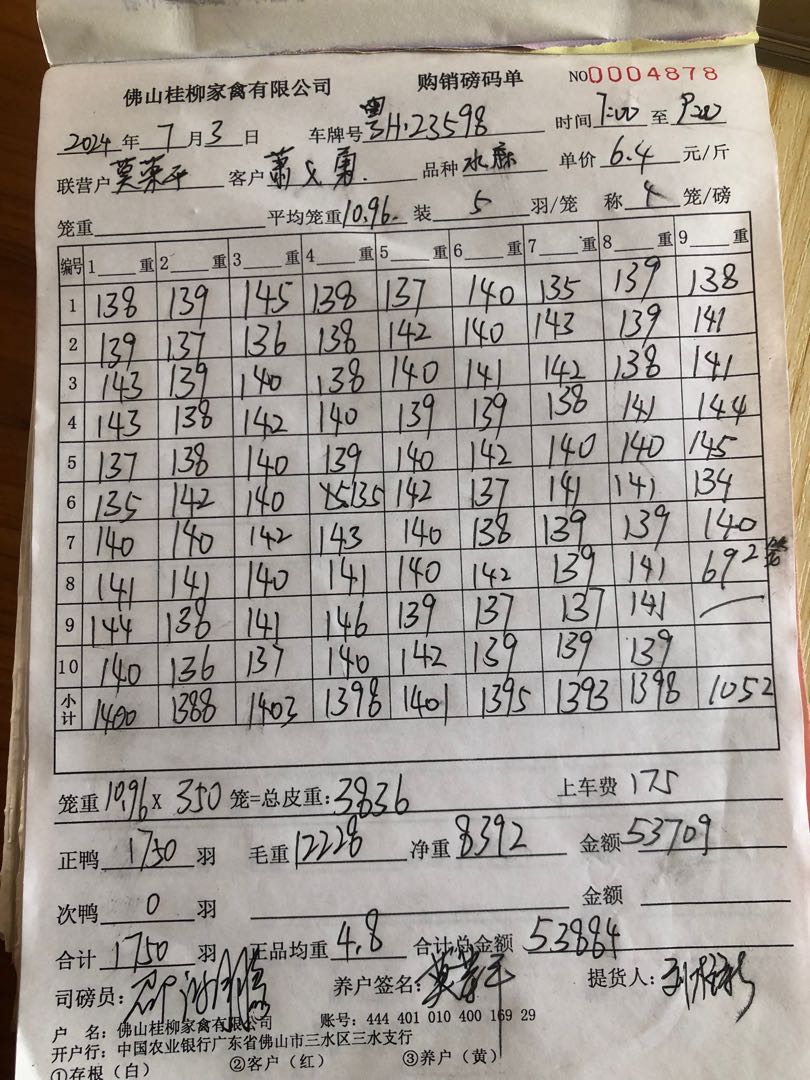 佛山桂柳家禽有限公司 购销磅码单 NO0004878
2024年7月3日 车牌号粤H·23598 时间7:00至9:00
联营户莫荣平 客户萧 勇 品种水麻 单价6.4元/斤
笼重 平均笼重10.96 装5羽/笼 称4笼/磅
编号 1 重 2 重 3 重 4 重 5 重 6 重 7 重 8 重 9 重
1 138 139 145 138 137 140 135 139 138
2 139 137 136 138 142 140 143 139 141
3 143 139 140 138 140 141 142 138 141
4 143 138 142 140 139 139 138 141 144
5 137 138 140 139 140 142 140 140 145
6 135 142 140 135 142 137 141 141 134
7 140 140 142 143 140 138 139 139 140
8 141 141 140 141 140 142 139 141 692
9 144 138 141 146 139 137 137 141
10 140 136 137 140 142 139 139 139
小计 1400 1388 1403 1398 1401 1395 1393 1398 1052
笼重10.96 x 350笼=总皮重:3836 上车费175
正鸭1750羽 毛重12228 净重8392 金额53709
次鸭0羽 金额
合计1750羽 正品均重4.8 合计总金额53884
司磅员: 养户签名:莫荣平 提货人:
户 名:佛山桂柳家禽有限公司 账号:444 401 010 400 169 29
开户行:中国农业银行广东省佛山市三水区三水支行
①存根(白) ②客户(红) ③养户(黄)